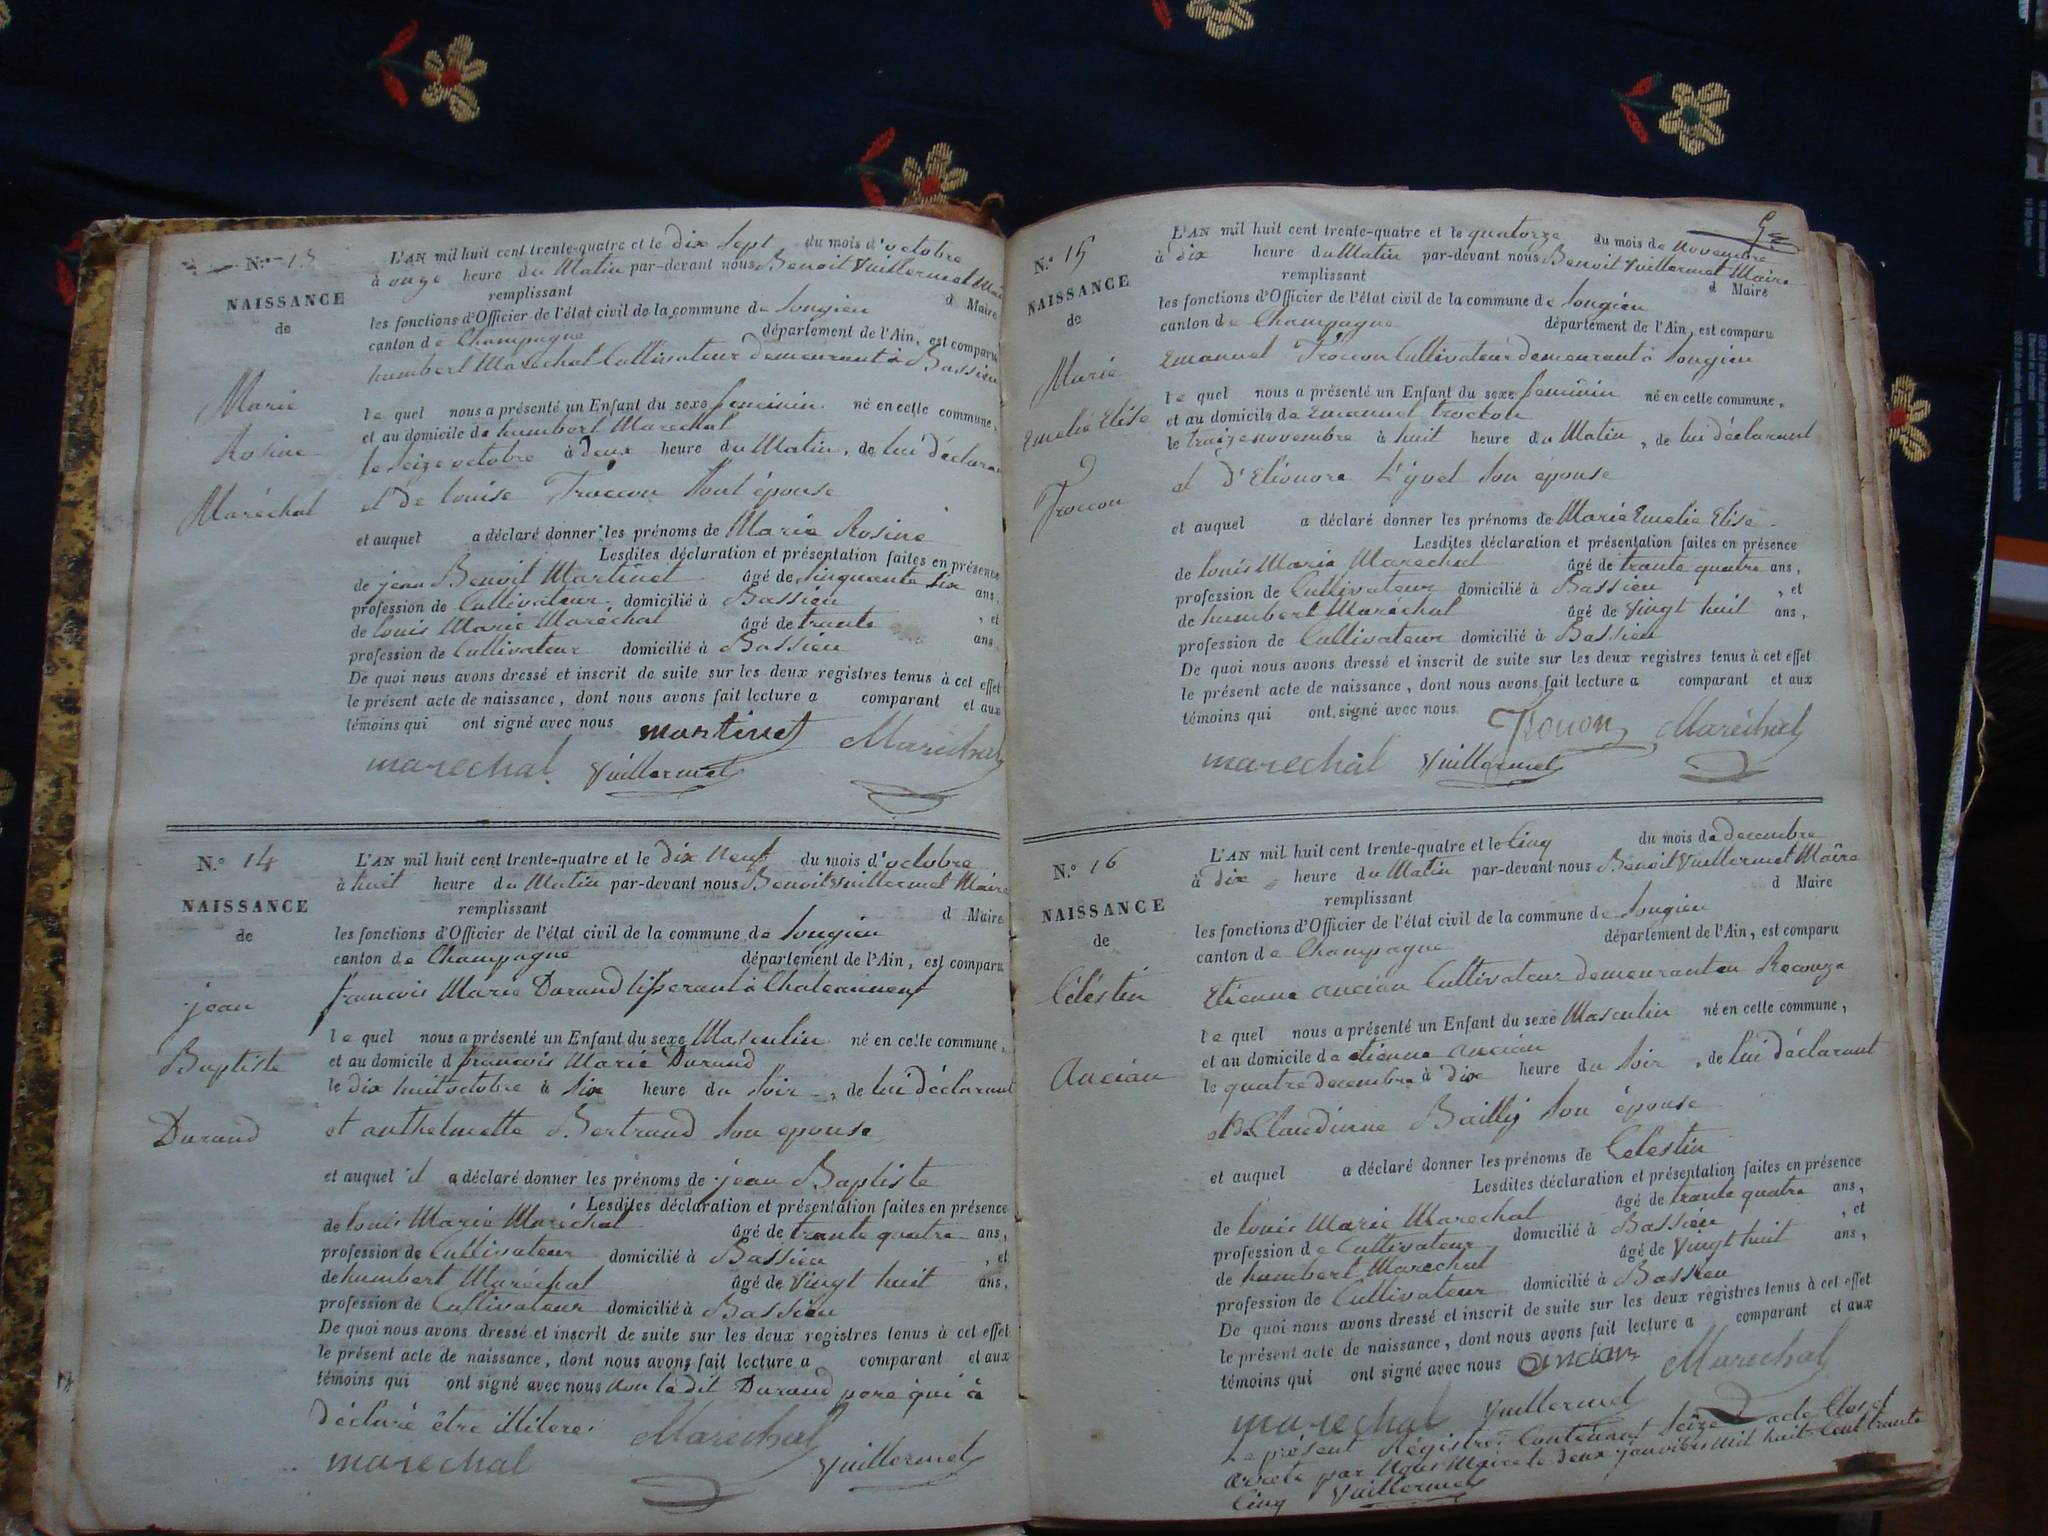 N.º 13
NAISSANCE
de
Marie
Rosine
Maréchal
L'AN mil huit cent trente-quatre et le dix sept du mois d'octobre
à onze heure du Matin par-devant nous Benoit Vuillermet
remplissant d Maire
les fonctions d'Officier de l'état civil de la commune de Songieu
canton de Champagne département de l'Ain, est comparu
humbert Maréchal Cultivateur demeurant à Bassieu
le quel nous a présenté un Enfant du sexe feminin né en cette commune,
et au domicile de humbert Marechal
le seize octobre à deux heure du Matin, de lui déclarant
et De louise Troccon Sont épouse
et auquel a déclaré donner les prénoms de Marie Rosine
Lesdites déclaration et présentation faites en présence
de jean Benoit Martinet âgé de Cinquante Six ans,
profession de Cultivateur domicilié à Bassieu , et
de louis Marie Maréchal âgé de trante ans,
profession de Cultivateur domicilié à Bassieu
De quoi nous avons dressé et inscrit de suite sur les deux registres tenus à cet effet
le présent acte de naissance, dont nous avons fait lecture a comparant et aux
témoins qui ont signé avec nous martinet Maréchal
marechal Vuillermet
N.º 14
NAISSANCE
de
jean
Baptiste
Durand
L'AN mil huit cent trente-quatre et le dix Neuf du mois d'octobre
à huit heure du Matin par-devant nous Benoit Vuillermet Maire
remplissant d Maire
les fonctions d'Officier de l'état civil de la commune de Songieu
canton de Champagne département de l'Ain, est comparu
francois Marie Durand tisserant à Chateauneuf
le quel nous a présenté un Enfant du sexe Masculin né en cette commune,
et au domicile d francois Marie Durand
le dix huit octobre à Six heure du Soir, de lui déclarant
et anthelmette Bertrand Son epouse
et auquel il a déclaré donner les prénoms de jean Baptiste
Lesdites déclaration et présentation faites en présence
de louis Marie Maréchal âgé de trante quatre ans,
profession de Cultivateur domicilié à Bassieu , et
de humbert Maréchal âgé de Vingt huit ans,
profession de Cultivateur domicilié à Bassieu
De quoi nous avons dressé et inscrit de suite sur les deux registres tenus à cet effet
le présent acte de naissance, dont nous avons fait lecture a comparant et aux
témoins qui ont signé avec nous non ledit Durand pere qui à
déclaré être illitere. Maréchal
marechal Vuillermet
N.º 15
NAISSANCE
de
Marie
Emelie Elise
Troccon
L'AN mil huit cent trente-quatre et le quatorze du mois de Novembre
à dix heure du Matin par-devant nous Benoit Vuillermet Maire
remplissant d Maire
les fonctions d'Officier de l'état civil de la commune de Songieu
canton de Champagne département de l'Ain, est comparu
Emanuel Troccon Cultivateur demeurant à Songieu
le quel nous a présenté un Enfant du sexe feminin né en cette commune,
et au domicile de Emanuel trocton
le traize novembre à huit heure du Matin, de lui déclarant
et d'Eléonore L'yvet Son épouse
et auquel a déclaré donner les prénoms de Marie Emelie Elise
Lesdites déclaration et présentation faites en présence
de louis Marie Marechal âgé de trante quatre ans,
profession de Cultivateur domicilié à Bassieu , et
de humbert Maréchal âgé de Vingt huit ans,
profession de Cultivateur domicilié à Bassieu
De quoi nous avons dressé et inscrit de suite sur les deux registres tenus à cet effet
le présent acte de naissance, dont nous avons fait lecture a comparant et aux
témoins qui ont signé avec nous Trocon Maréchal
marechal Vuillermet
N.º 16
NAISSANCE
de
Célestin
Ancian
L'AN mil huit cent trente-quatre et le Cinq du mois de decembre
à dix heure du Matin par-devant nous Benoit Vuillermet Maire
remplissant d Maire
les fonctions d'Officier de l'état civil de la commune de Songieu
canton de Champagne département de l'Ain, est comparu
Etienne ancian Cultivateur demeurant en
le quel nous a présenté un Enfant du sexe Masculin né en cette commune,
et au domicile de etienne ancian
le quatre decembre à dix heure du Soir, de lui déclarant
et De Claudinne Bailly Son épouse
et auquel a déclaré donner les prénoms de Celestin
Lesdites déclaration et présentation faites en présence
de louis Marie Marechal âgé de trante quatre ans,
profession de Cultivateur domicilié à Bassieu , et
de humbert Marechal âgé de Vingt huit ans,
profession de Cultivateur domicilié à Bassieu
De quoi nous avons dressé et inscrit de suite sur les deux registres tenus à cet effet
le présent acte de naissance, dont nous avons fait lecture a comparant et aux
témoins qui ont signé avec nous ancian Maréchal
marechal Vuillermet
Le présent Régistre Contenant Seize acte Clos et
arreté par Nous Maire le deux janvier Mil huit Cent trante
Cinq Vuillermet